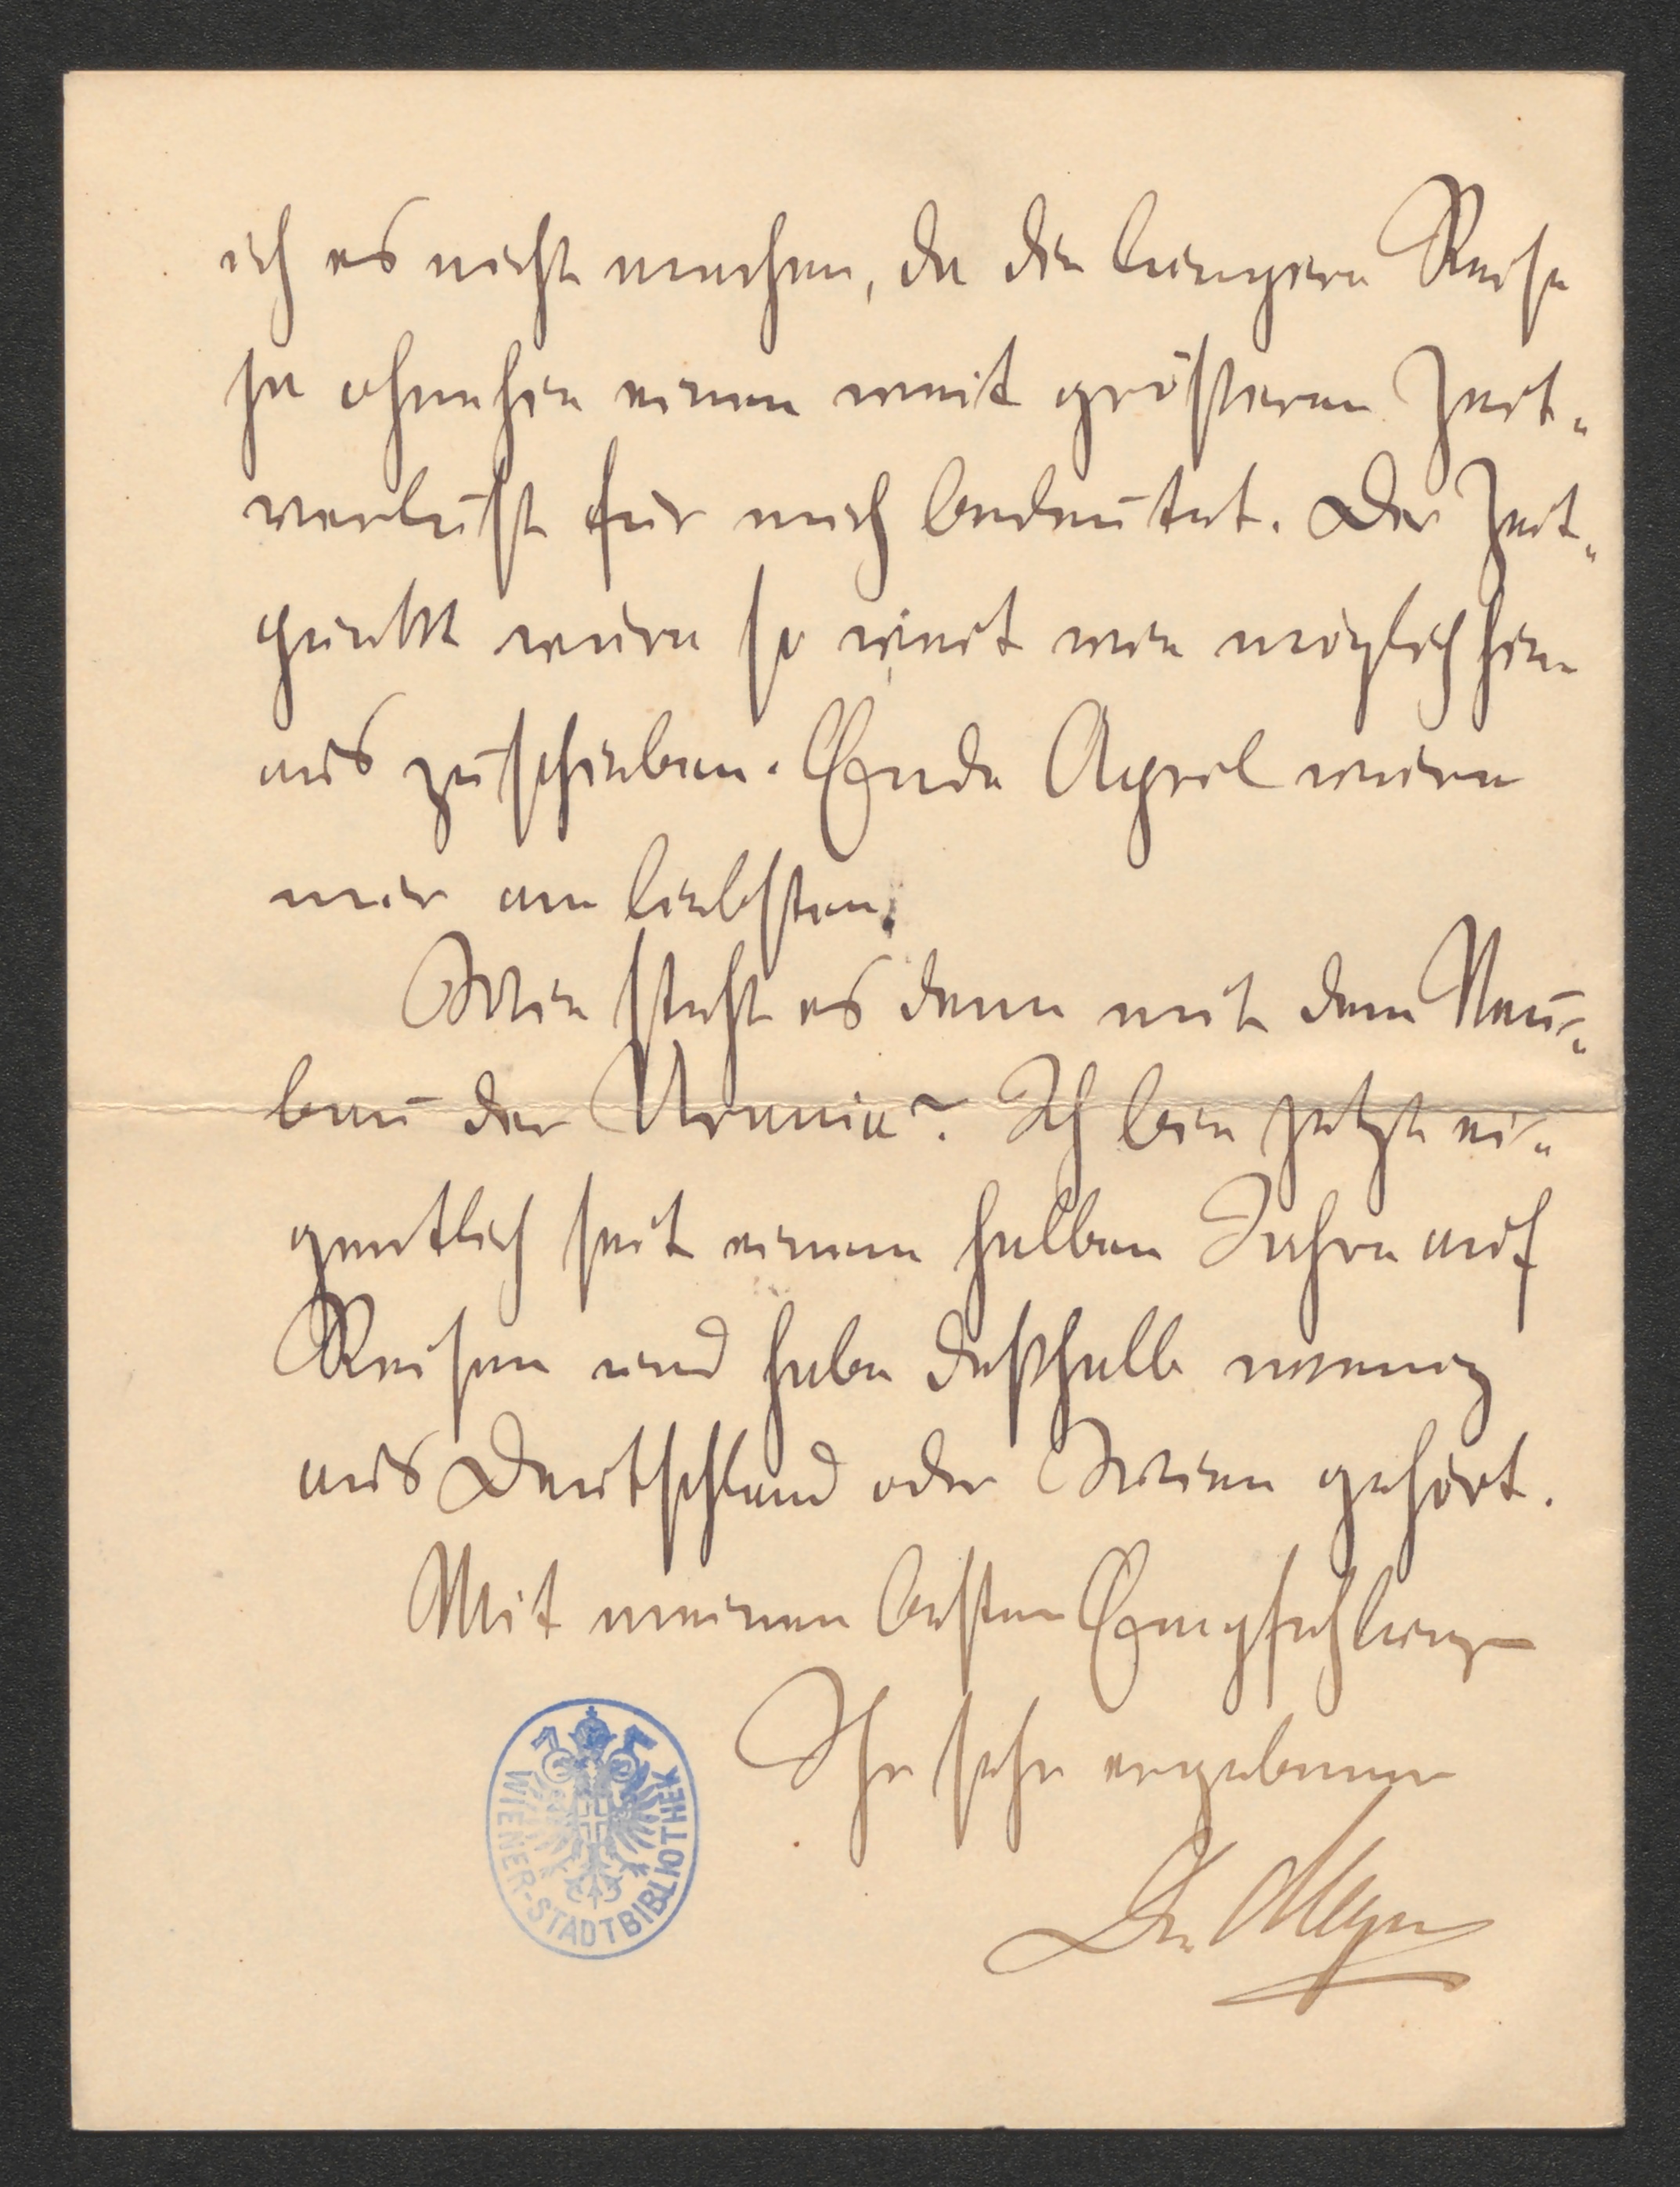 ich es nicht machen, da die längere Reise
ja ohnehin einen weit größeren Zeit-
verlust für mich bedeutet. Der Zeit-
punkt wäre so weit wie möglich hin-
aus zu schieben. Ende April wäre
mir am liebsten.
Wie steht es denn mit dem Neu-
bau der Urania? Ich bin jetzt ei-
gentlich seit einem halben Jahre auf
Reisen und habe deßhalb wenig
aus Deutschland oder Wien gehört.
Mit meinen besten Empfehlungen
Ihr sehr ergebener
Dr. Meyer
WIENER-STADTBIBLIOTHEK